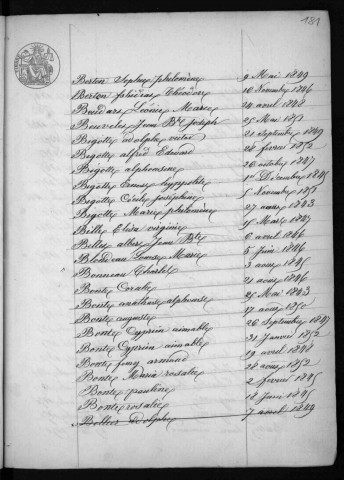 181
Berton Sophie philomène 9 Mai 1849
Berton Théodore 10 Novembre 1846
Marie 24 avril 1848
Jean Bte Joseph 25 Mai 1851
Bigotte adolphe victor 21 septembre 1849
Bigotte alfred Edouard 28 fevrier 1852
Bigotte alphonsine 26 octobre 1847
Bigotte Ernest hyppolite 1er Décembre 1845
Bigotte Cécile joséphine 5 Novembre 1851
Bigotte Marie philomène 27 mars 1843
Bille Elisa virginie 15 Mars 1847
albert Jean Bte 6 avril 1846
Blondeau Louis Marie 5 Juin 1846
Bonneau Charles 3 aout 1845
Bonte Coralie 21 aout 1846
Bonte anathalie alphonse 25 Mai 1843
Bonte auguste 17 aout 1850
Bonte Cyprien aimable 26 Septembre 1847
Bonte Cyprien aimable 31 Janvier 1852
Bonte armand 19 avril 1848
Bonte Maria rosalie 24 aout 1852
Bonte pauline 2 fevrier 1845
Bonte rosalie 12 Juin 1845
Adolphe 7 avril 1849